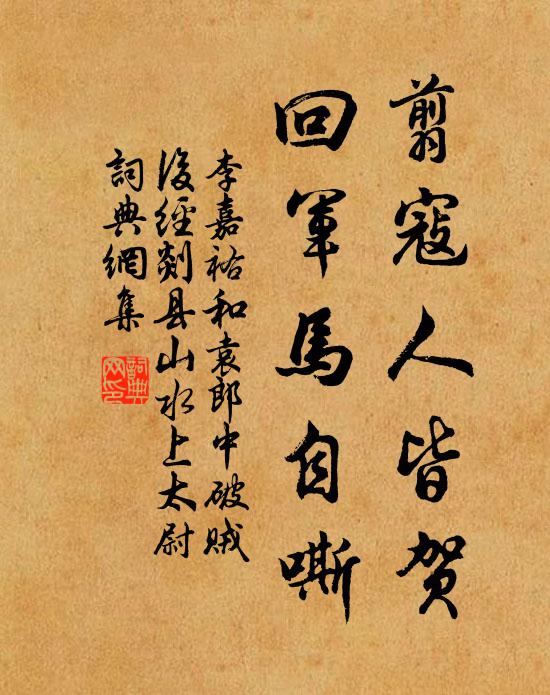 翦寇人皆贺
回军马自嘶
李嘉祐和袁郎中破贼
後經剡县山水上太尉
詞典網集
詞典
网印